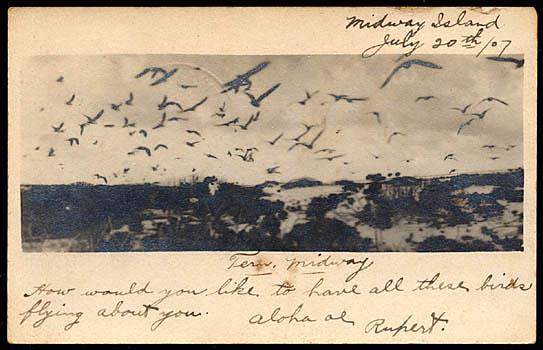 Midway Island
July 20th/07
Tern, Midway
How would you like to have all these birds
flying about you. aloha oe Rupert.